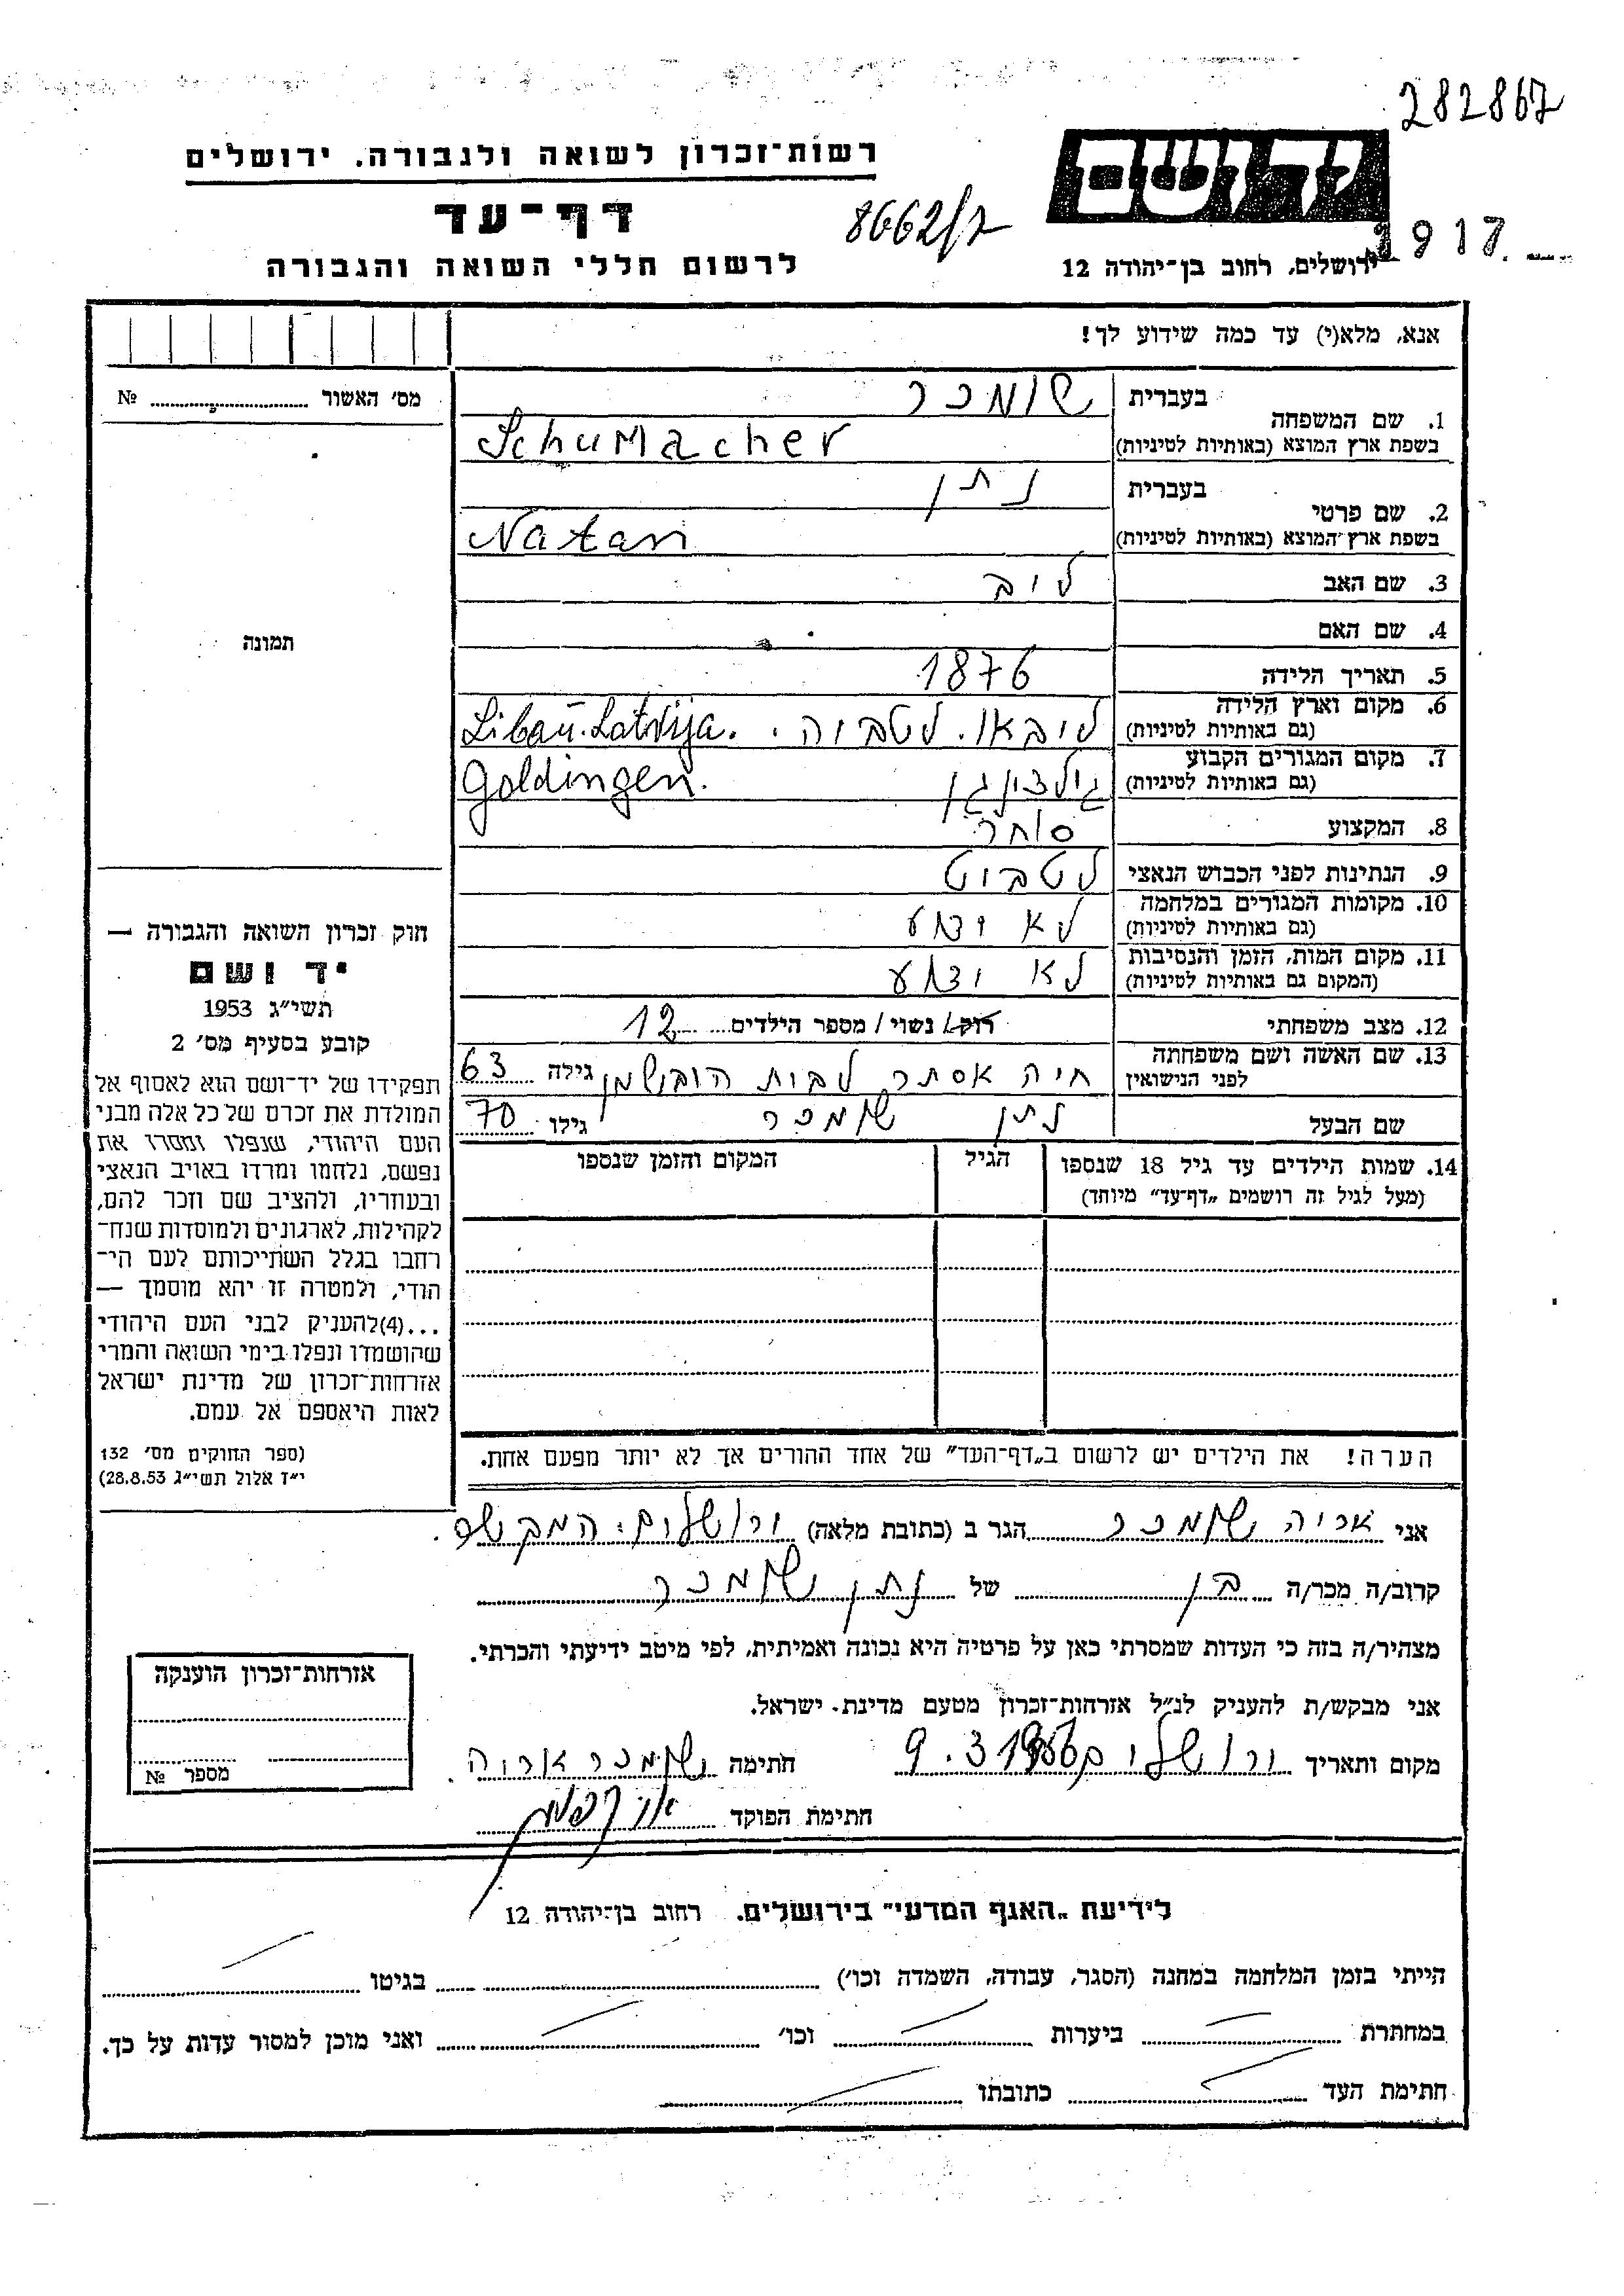 282867
ידושם
1917
רשות־זכרון לשואה ולגבורה. ירושלים
דף־עד
8662/7
לרשום חללי השואה והגבורה
ירושלים, רחוב בן־יהודה 12
אנא, מלא(י) עד כמה שידוע לך!
מס׳ האשור № ........
1. שם המשפחה
בעברית שומכר
בשפת ארץ המוצא (באותיות לטיניות) Schumacher
2. שם פרטי
בעברית נתן
בשפת ארץ המוצא (באותיות לטיניות) Natan
3. שם האב ליב
4. שם האם
תמונה
5. תאריך הלידה 1876
6. מקום וארץ הלידה (גם באותיות לטיניות) ליבאו. לטביה. Libau. Latvija.
7. מקום המגורים הקבוע (גם באותיות לטיניות) גולדינגן Goldingen.
8. המקצוע סוחר
9. הנתינות לפני הכבוש הנאצי לטביט
10. מקומות המגורים במלחמה (גם באותיות לטיניות) לא ידוע
11. מקום המות, הזמן והנסיבות (המקום גם באותיות לטיניות) לא ידוע
12. מצב משפחתי רוק/ נשוי/ מספר הילדים 12
13. שם האשה ושם משפחתה לפני הנישואין חיה אסתר לבית הובשמן גילה 63
שם הבעל נתן שומכר גילו 70
14. שמות הילדים עד גיל 18 שנספו
(מעל לגיל זה רושמים „דף־עד” מיוחד)
הגיל
המקום והזמן שנספו
חוק זכרון השואה והגבורה —
יד ושם
תשי״ג 1953
קובע בסעיף מס׳ 2
תפקידו של יד־ושם הוא לאסוף אל
המולדת את זכרם של כל אלה מבני
העם היהודי, שנפלו ומסרו את
נפשם, נלחמו ומרדו באויב הנאצי
ובעוזריו, ולהציב שם וזכר להם,
לקהילות, לארגונים ולמוסדות שנח־
רבו בגלל השתייכותם לעם הי־
הודי, ולמטרה זו יהא מוסמך —
...(4)להעניק לבני העם היהודי
שהושמדו ונפלו בימי השואה והמרי
אזרחות־זכרון של מדינת ישראל
לאות היאספם אל עמם.
(ספר החוקים מס׳ 132
י״ז אלול תשי״ג 28.8.53)
הערה! את הילדים יש לרשום ב„דף־העד” של אחד ההורים אך לא יותר מפעם אחת.
אני אריה שומכר הגר ב (כתובת מלאה) ירושלים.
קרוב/ה מכר/ה בן של נתן שומכר
מצהיר/ה בזה כי העדות שמסרתי כאן על פרטיה היא נכונה ואמיתית, לפי מיטב ידיעתי והכרתי.
אני מבקש/ת להעניק לנ״ל אזרחות־זכרון מטעם מדינת ישראל.
מקום ותאריך ירושלים 9.3 חתימה שומכר אריה.
חתימת הפוקד
אזרחות־זכרון הוענקה
מספר №
לידיעת „האגף המדעי” בירושלים. רחוב בן־יהודה 12
הייתי בזמן המלחמה במחנה (הסגר, עבודה, השמדה וכו׳) ........ בגיטו ........
במחתרת ........ ביערות ........ וכו׳ ........ ואני מוכן למסור עדות על כך.
חתימת העד ........ כתובתו ........